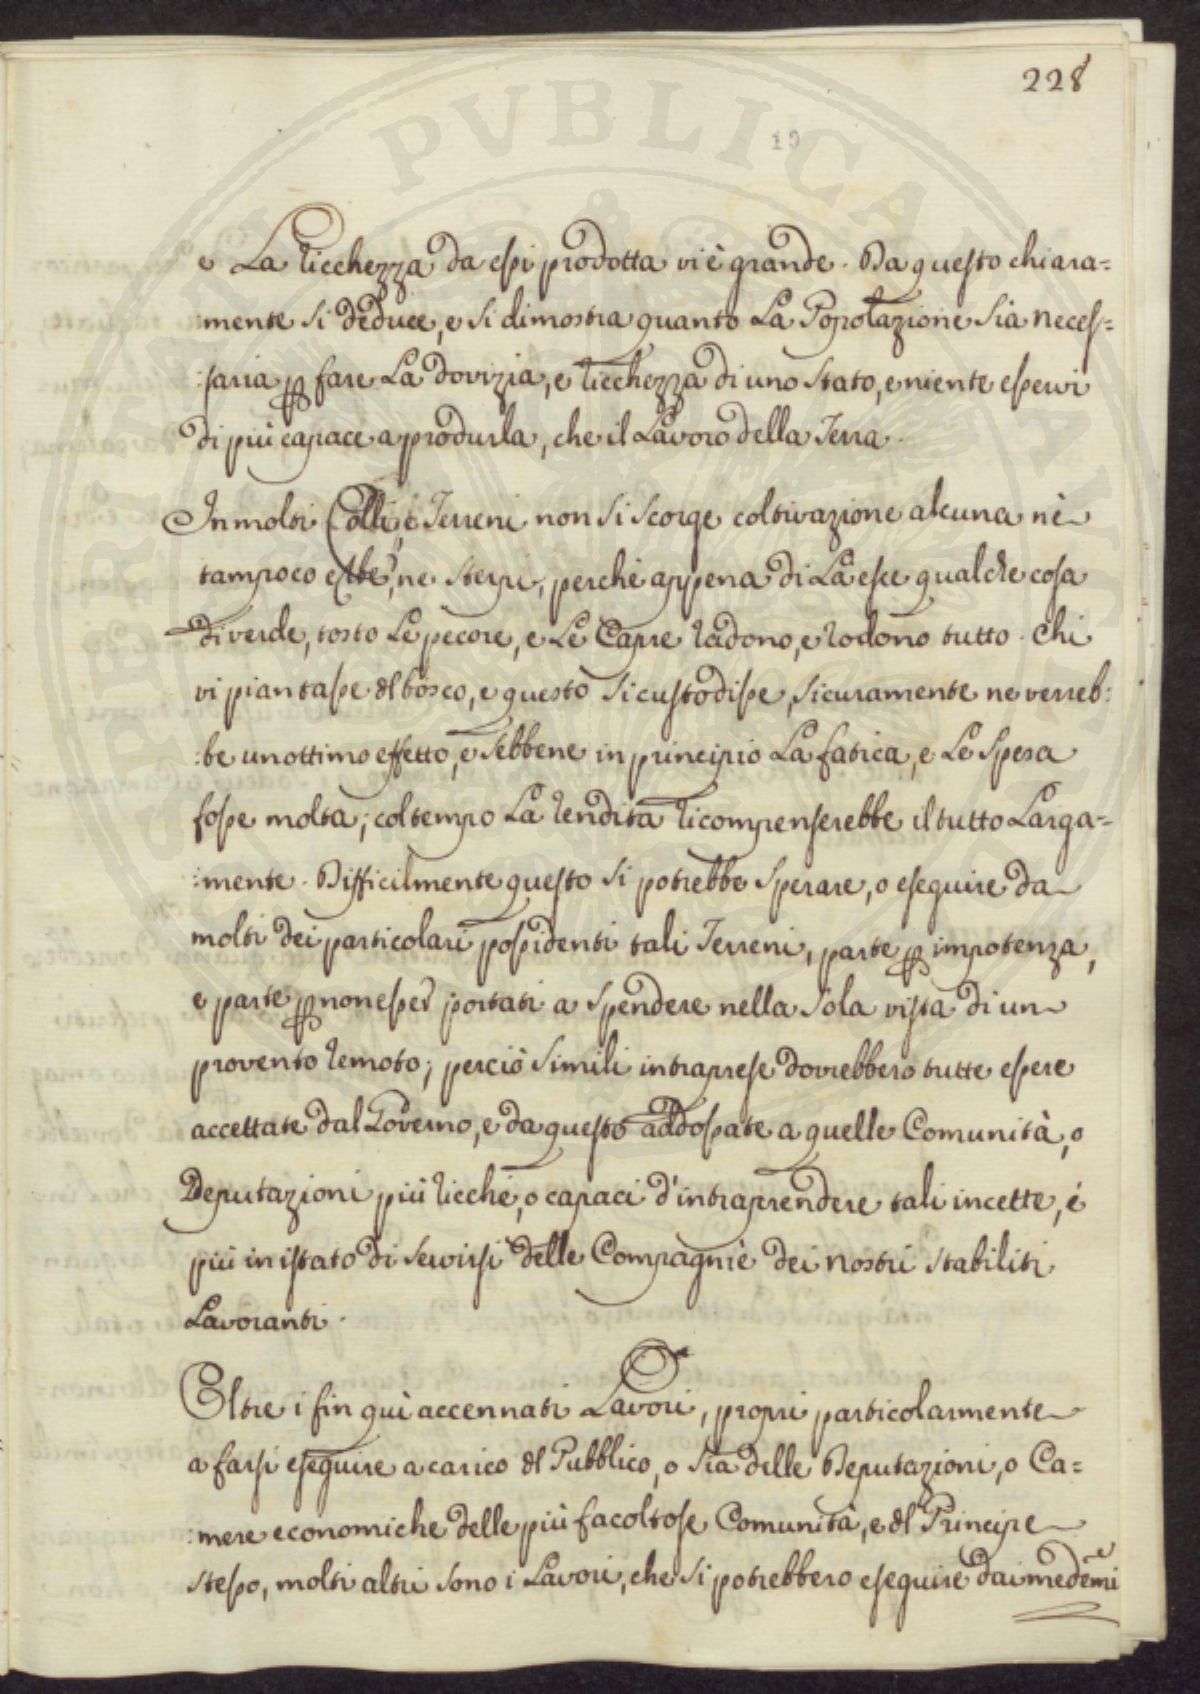 228
19
e La ricchezza da essi prodotta vi è grande. Da questo chiara=
:mente si deduce, e si dimostra quanto La Popolazione sia neces=
:saria p fare La dovizia, e ricchezza di uno Stato, e niente esservi
di più capace a produrla, che il Lavoro della Terra.
In molti Colli, e Terreni non si scorge coltivazione alcuna nè
tampoco erbe, ne sterpi, perchè appena di Là esce qualche cosa
di verde, tosto Le pecore, e Le Capre radono, e rodono tutto. Chi
vi piantasse del bosco, e questo si custodisse, sicuramente ne verreb:
:be un ottimo effetto, e sebbene in principio La fatica, e Le Spesa
fosse molta; col tempo La rendita ricompenserebbe il tutto Larga=
:mente. Difficilmente questo si potrebbe Sperare, o eseguire da
molti dei particolari possidenti tali Terreni, parte p impotenza,
e parte p non esser portati a Spendere nella sola vista di un
provento remoto; perciò simili intraprese dovrebbero tutte essere
accettate dal Governo, e da questo addossate a quelle Comunità, o
Deputazioni più ricche, o capaci d'intraprendere tali incette, e
più in istato di servirsi delle Compagnie dei nostri stabiliti
Lavoranti.
Oltre i fin quì accennati Lavori, propri particolarmente
a farsi eseguire a carico del Pubblico, o sia delle Deputazioni, o Ca=
:mere economiche delle più facoltose Comunità, e del Principe
stesso, molti altri sono i Lavori, che si potrebbero eseguire dai medemi